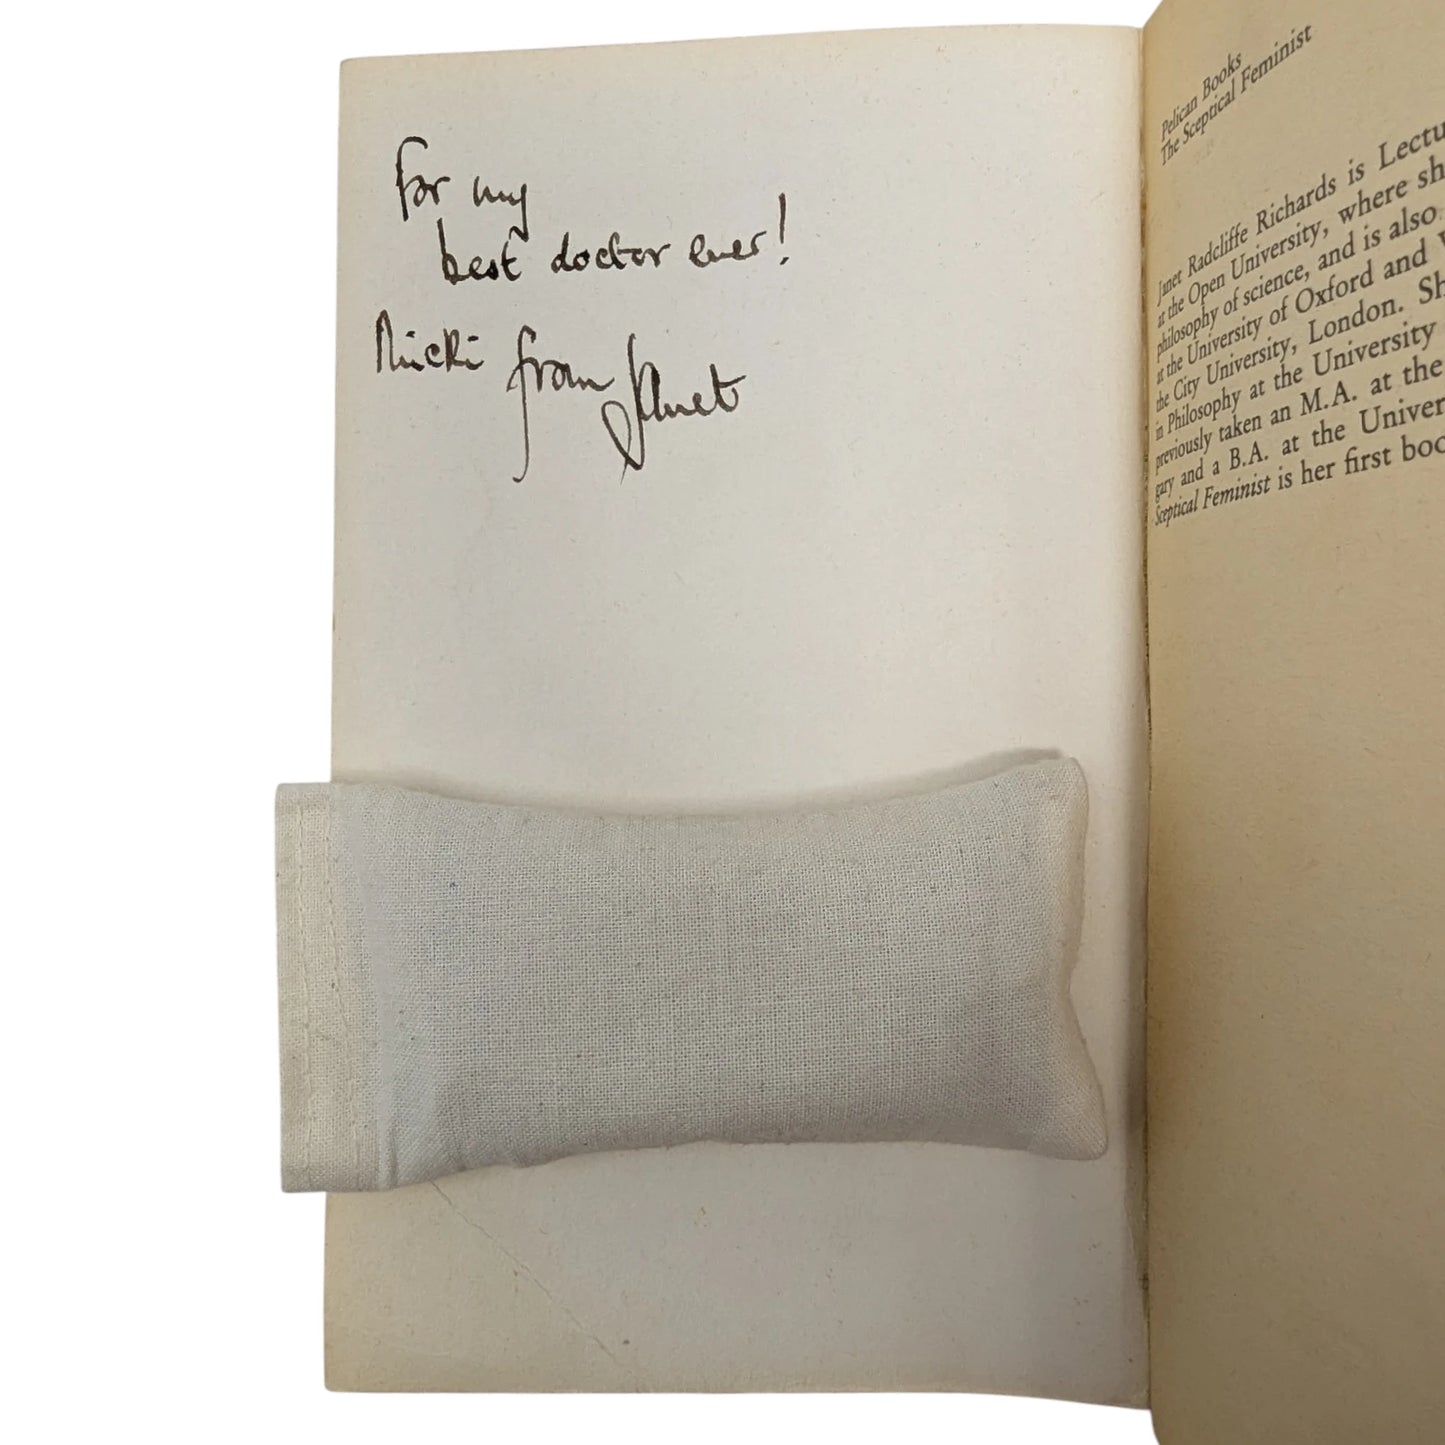 for my
best doctor ever!
Nicki from Janet
Pelican Books
The Sceptical Feminist
Janet Radcliffe Richards is Lectu
at the Open University, where sh
philosophy of science, and is also
at the University of Oxford and
the City University, London. Sh
in Philosophy at the University
previously taken an M.A. at the
gary and a B.A. at the Univer
Sceptical Feminist is her first boo